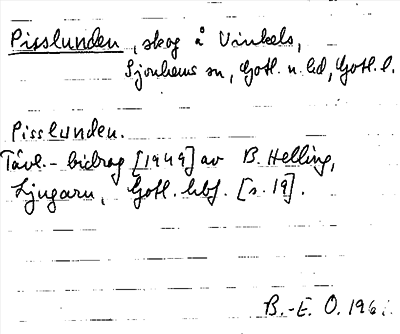 Pisslunden, skog å Vinkels,
Sjonhems sn, Gotl. n. hd, Gotl. l.
Pisslunden.
Tävl.-bidrag [1949] av B. Helling,
Ljugarn, Gotl. hbf. [s. 19].
B.-E. O. 196